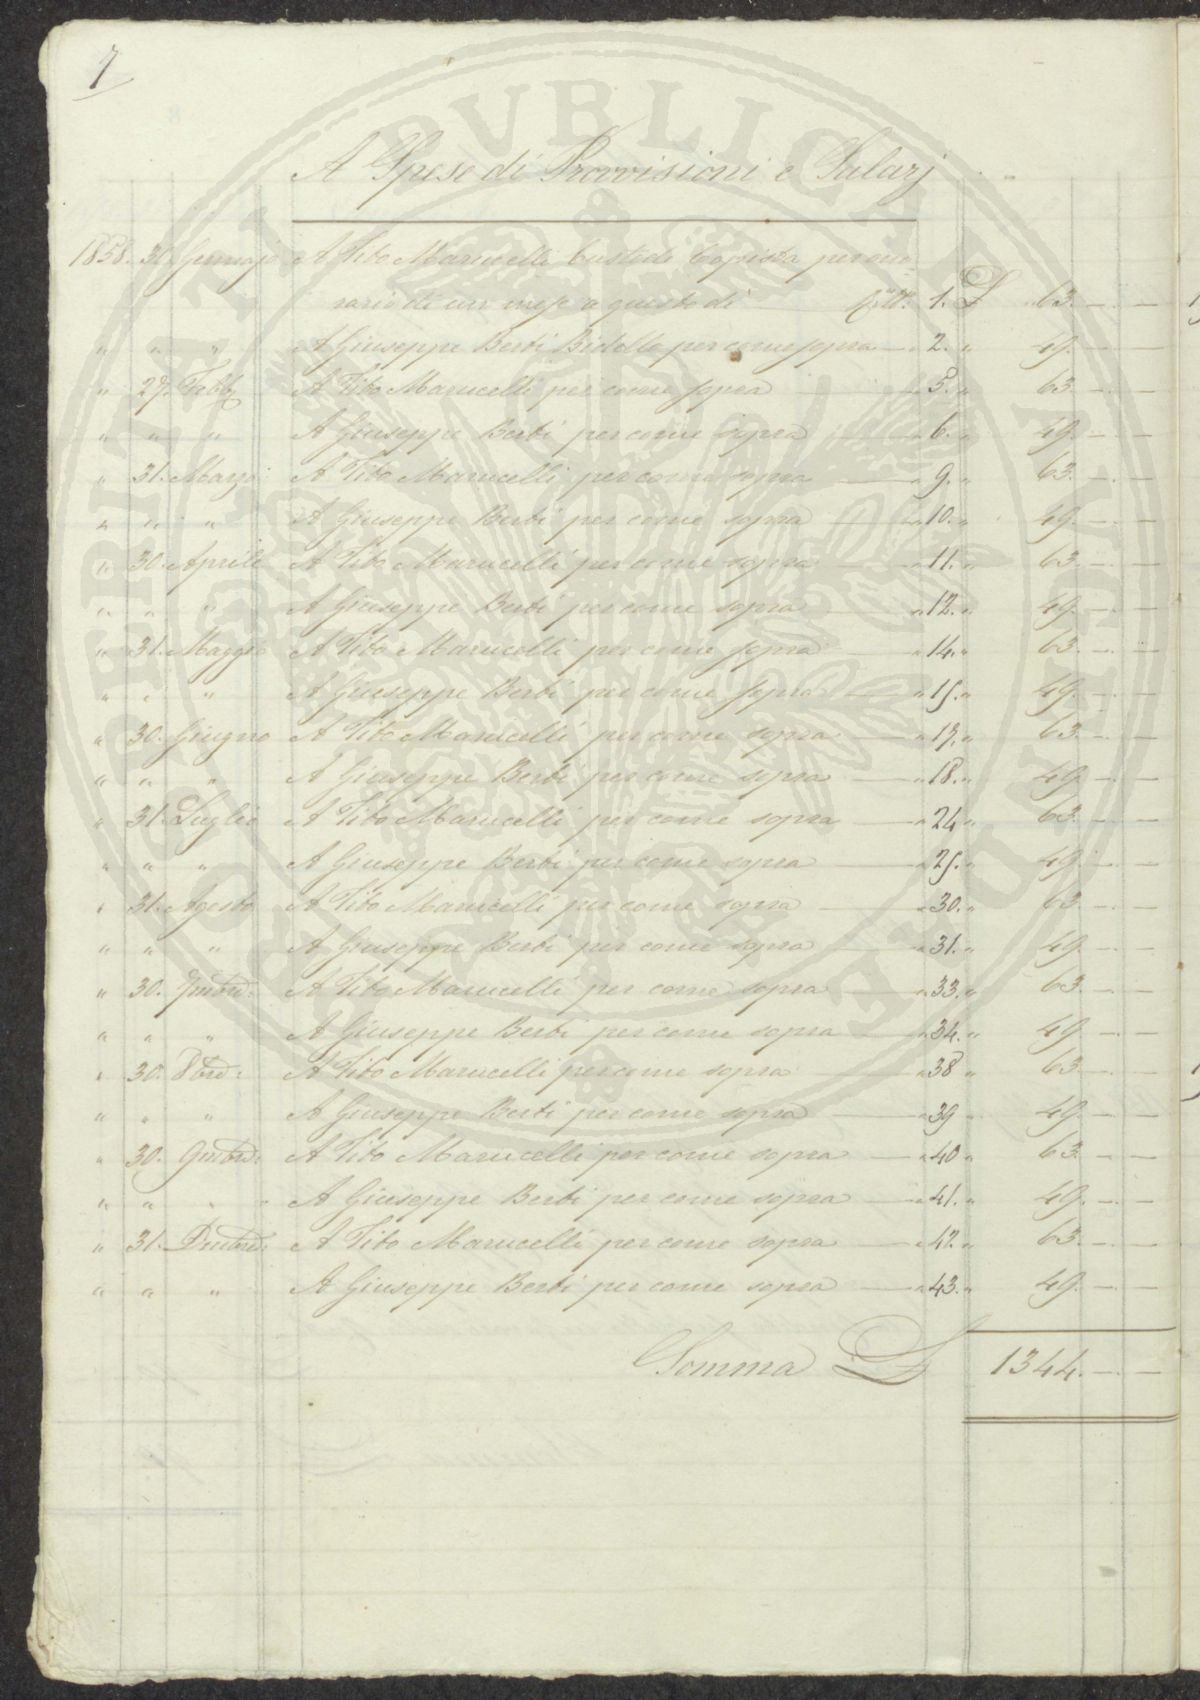 7
A Spese di Provvisioni e Salarj
1858. 30. Gennajo A Tito Marucelli Custode Copista per ono
rario di un mese a questo di 1. £ 63. — —
" " " A Giuseppe Berti Bidello per come sopra — " 2. " 49. — —
" 27. Febb. A Tito Marucelli per come sopra — " 5. " 63. — —
" " " A Giuseppe Berti per come sopra — " 6. " 49. — —
" 31. Marzo A Tito Marucelli per come sopra — " 9. " 63. — —
" " " A Giuseppe Berti per come sopra — " 10. " 49. — —
" 30. Aprile A Tito Marucelli per come sopra — " 11. " 63. — —
" " " A Giuseppe Berti per come sopra — " 12. " 49. — —
" 31. Maggio A Tito Marucelli per come sopra — " 14. " 63. — —
" " " A Giuseppe Berti per come sopra — " 15. " 49. — —
" 30. Giugno A Tito Marucelli per come sopra — " 17. " 63. — —
" " " A Giuseppe Berti per come sopra — " 18. " 49. — —
" 31. Luglio A Tito Marucelli per come sopra — " 24 " 63. — —
" " " A Giuseppe Berti per come sopra — " 25. " 49. — —
" 31. Agosto A Tito Marucelli per come sopra — " 30. " 63. — —
" " " A Giuseppe Berti per come sopra — " 31. " 49. — —
" 30. 7mbre: A Tito Marucelli per come sopra — " 33. " 63. — —
" " " A Giuseppe Berti per come sopra — " 34. " 49. — —
" 30. 8bre: A Tito Marucelli per come sopra — " 38 " 63. — —
" " " A Giuseppe Berti per come sopra — " 39 " 49. — —
" 30. 9mbre: A Tito Marucelli per come sopra — " 40 " 63. — —
" " " A Giuseppe Berti per come sopra — " 41. " 49. — —
" 31. Dmbre: A Tito Marucelli per come sopra — " 42. " 63. — —
" " " A Giuseppe Berti per come sopra — " 43. " 49. — —
Somma £ 1344. — —
PROSPERITATI PUBLICAE AUGENDAE